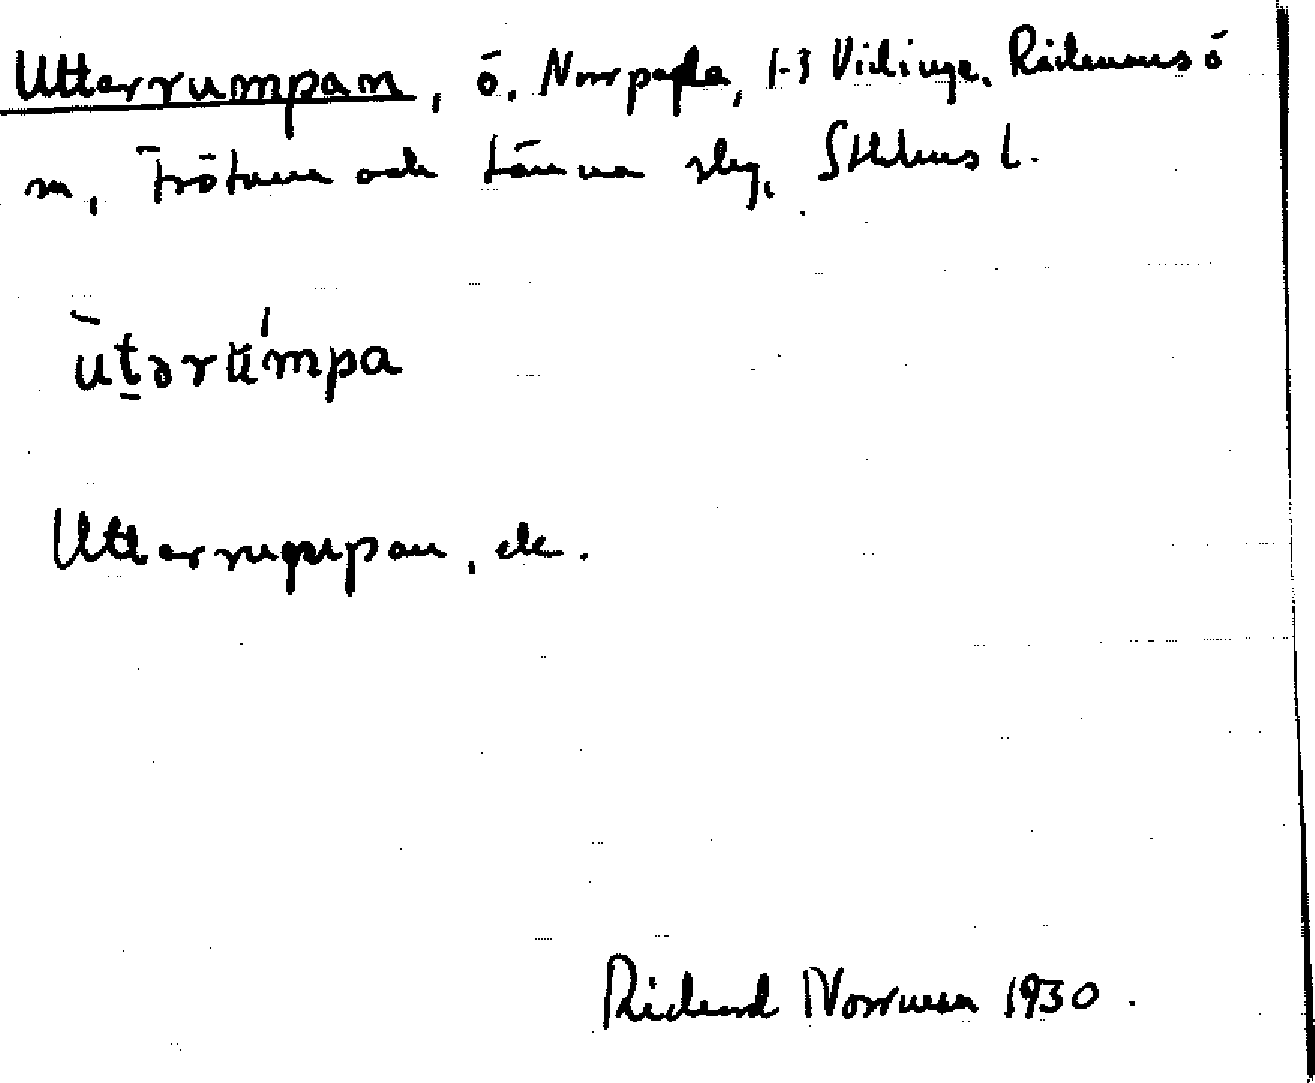 Utterrumpan, ö, Norrpada, 1-3 Vidinge, Rådmansö
sn, Frötuna och Länna slg, Sthlms l.
ut̠ərŭ'mpa
Utterrumpan, ek.
Rickard Norrman 1930.